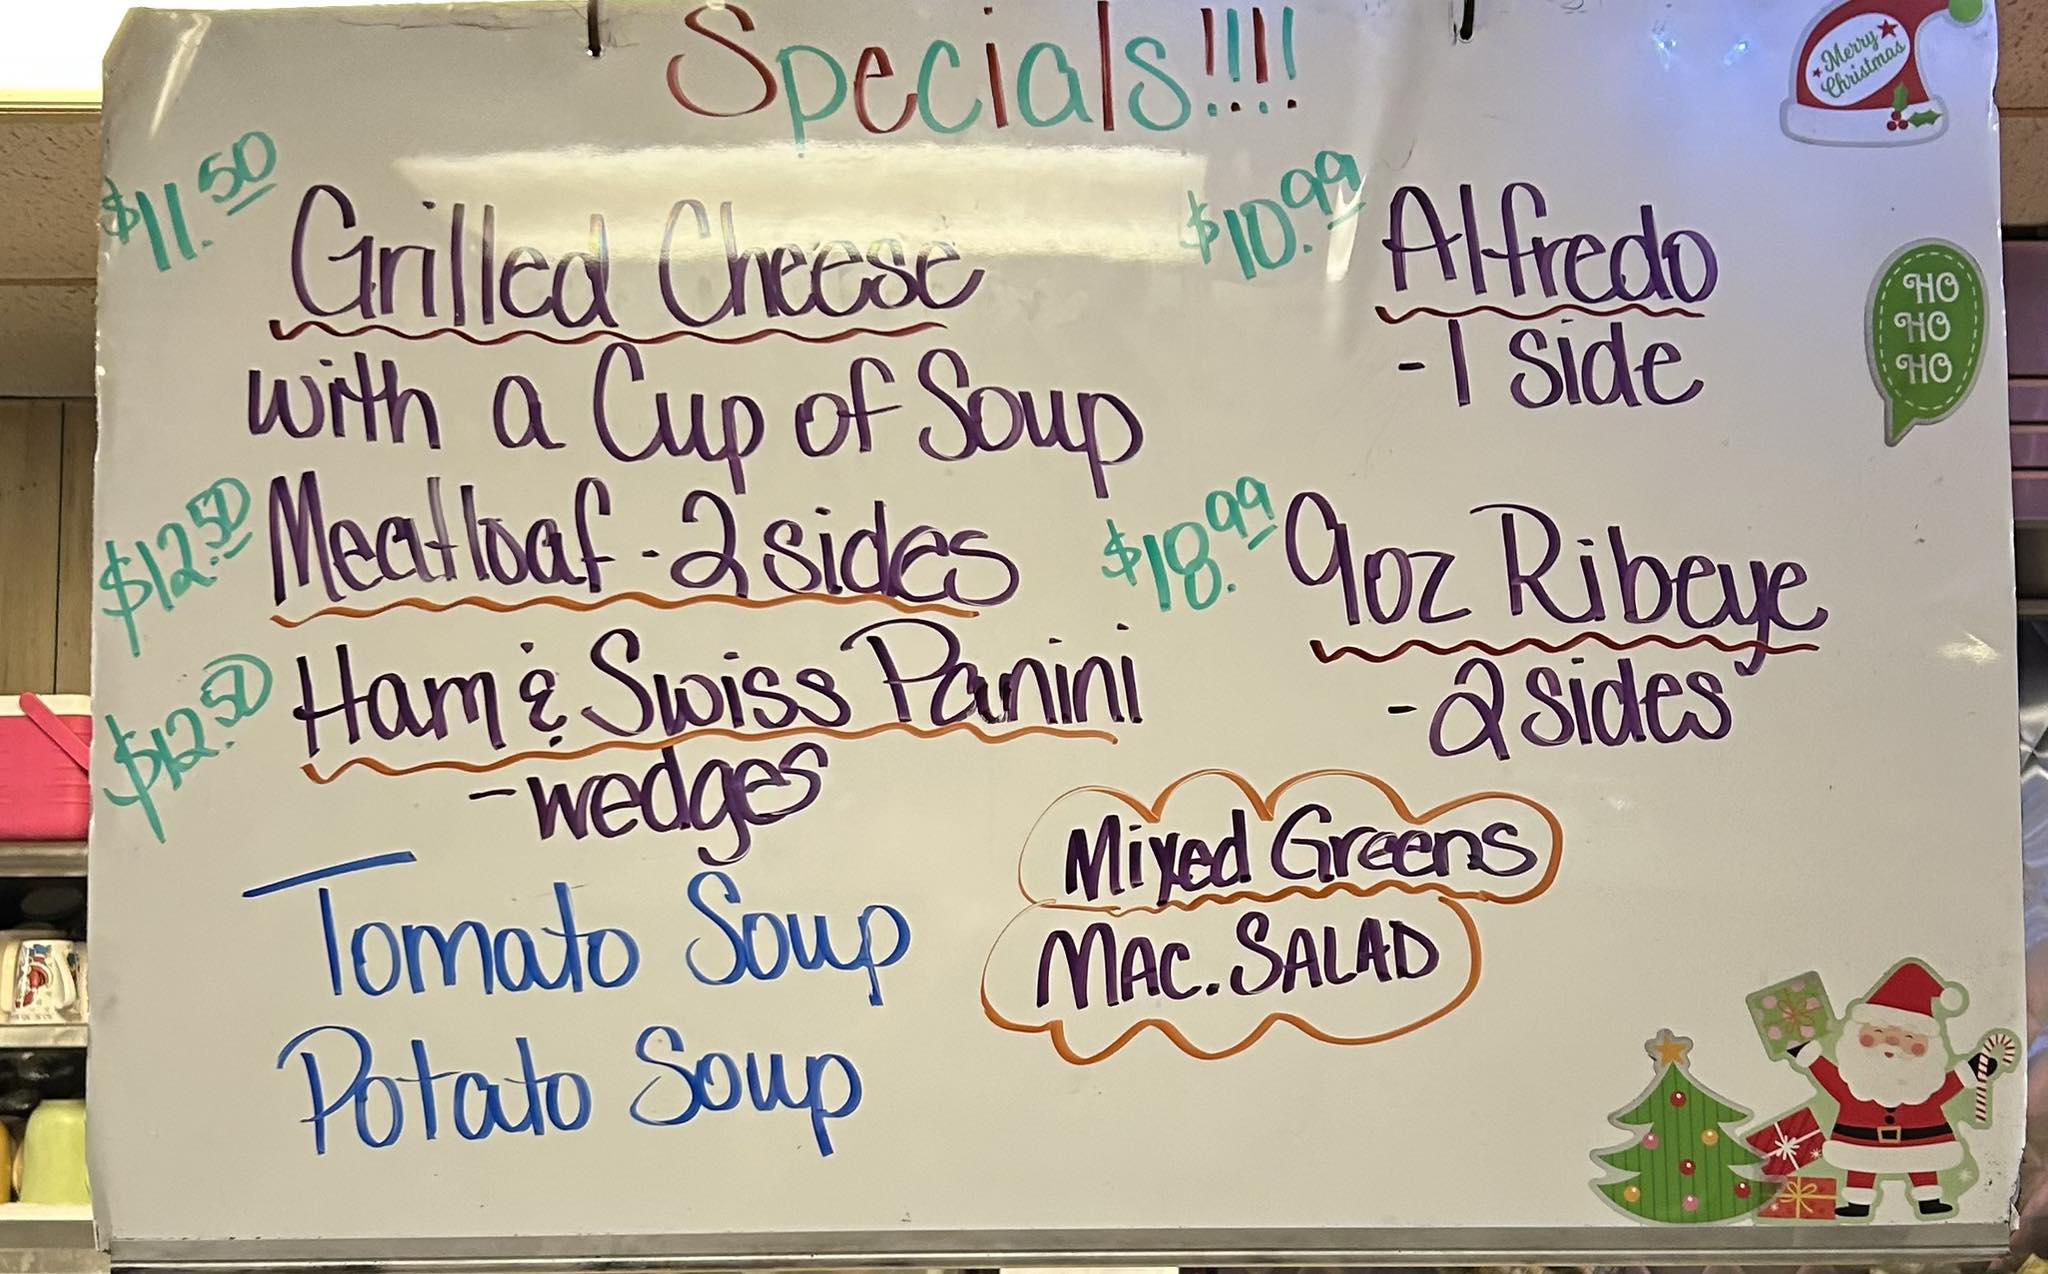 Specials!!!!
$11.50 Grilled Cheese
with a Cup of Soup
$12.50 Meatloaf - 2 sides
$12.50 Ham & Swiss Panini
- wedges
Tomato Soup
Potato Soup
$10.99 Alfredo
- 1 side
$18.99 9oz Ribeye
- 2 sides
Mixed Greens
MAC. SALAD
Merry
Christmas
HO
HO
HO